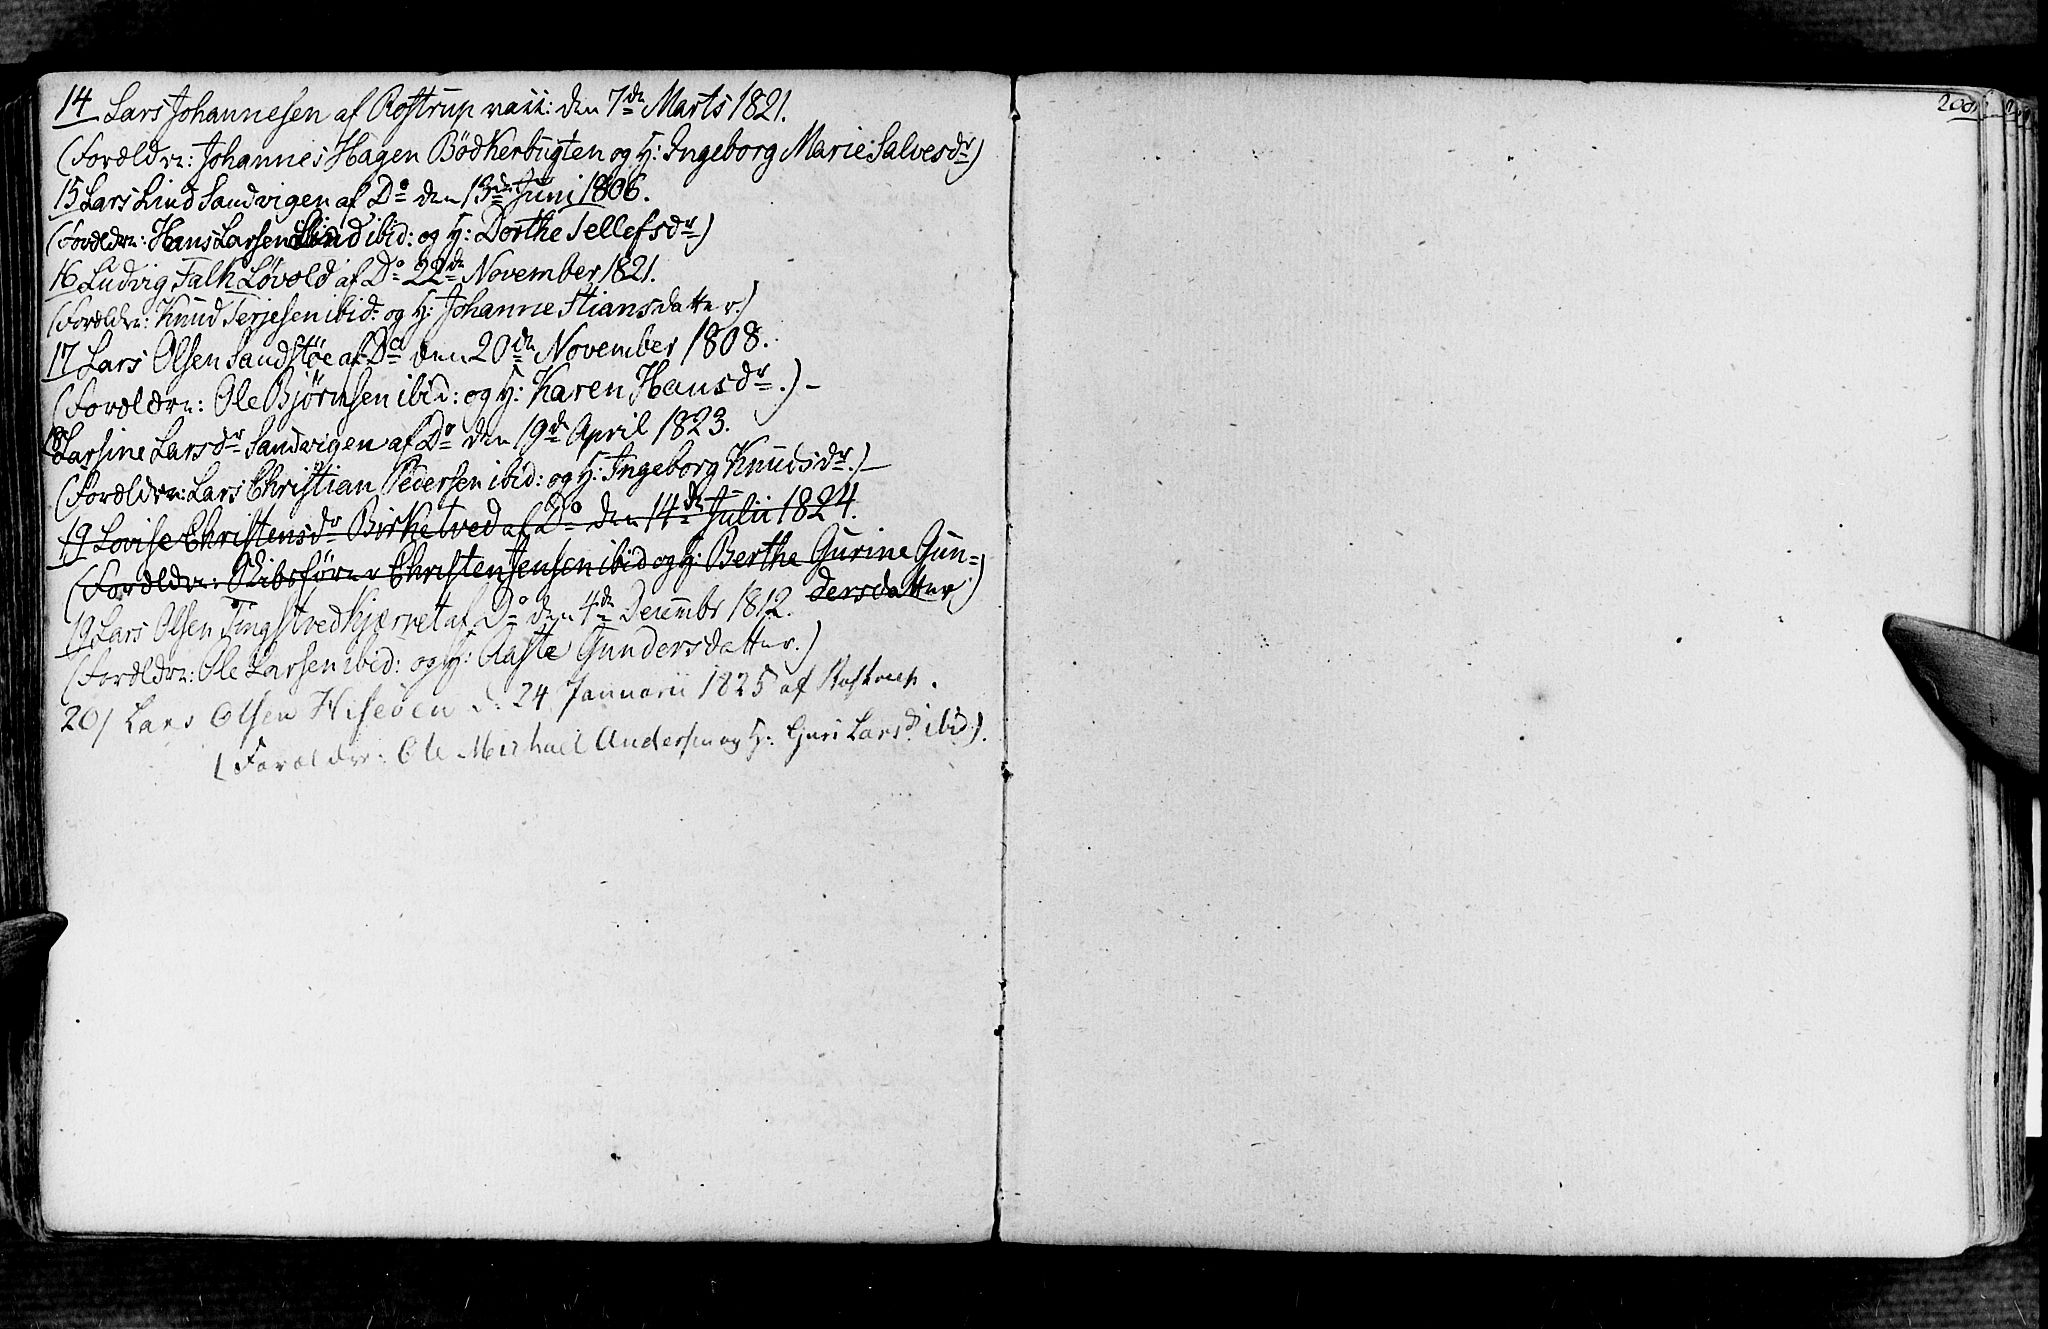 14 Lars Johannesen af Rostrup vacc: den 7de Marts 1821.
(Forældrn: Johannes Hagen Bödkerbugten og H: Ingeborg Marie Salvesdr)
15 Lars Lind Sandvigen af Do den 13de Juni 1806.
(Forældrn: Hans Larsen Lind ibid: og H: Dorthe Tellefsdr)
16 Ludvig Falk Løvold af Do 22de November 1821.
(Forældrn: Knud Terjesen ibid: og H: Johanne Stiansdatter.)
17 Lars Olsen Sandstöe af Do den 20de November 1808.
(Forældrn: Ole Bjørnsen ibid: og H: Karen Hansdr.)-
18 Larsine Larsdr Sandvigen af Do den 19de April 1823.
(Forældrn: Lars Christian Pedersen ibid: og H: Ingeborg Knudsdr.)-
19 Lovise Christensdr Birketved af Do den 14de Julii 1824.
(Forældrn: Christen Jensen ibid og H: Berthe Gurine Gun=
dersdatter)
19 Lars Olsen Tingstvedkjærnet af Do den 4de Decembr 1812.
(Forældrn: Ole Larsen ibid: og H: Aaste Gundersdatter.)
20/ Lars Olsen Hiseöen d: 24 Januarii 1825 af Rostrup.
(Forældre: Ole Michael Andersen og H: Guri Larsdr ibid).
200